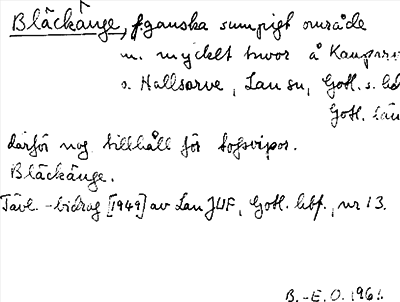 Bläckänge, f. ganska sumpigt område
m. mycket tuvor å
s. Hallsarve, Lau sn, Gotl. s. hd
Gotl. län
därför nog tillhåll för tofsvipor.
Bläckänge.
Tävl.-bidrag [1949] av Lau JUF, Gotl. hbf., nr 13.
B.-E.O. 1961.